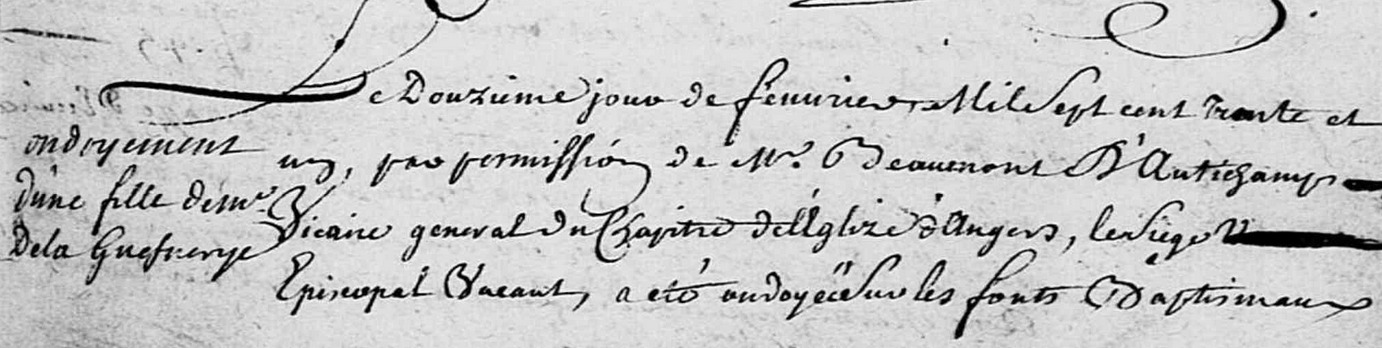 ondoyement
d'une fille de mr.
Dela Guesnerye
Le Douzieme jour de feuurier, Mil Sept cent Trente et
un, par permission de Mr. Beaumont D'Autichamp
Vicaire general du Chapitre de l'Eglize d'Angers, le Siege
Episcopal Vacant, a eté ondoyée Sur les fonts Baptismaux